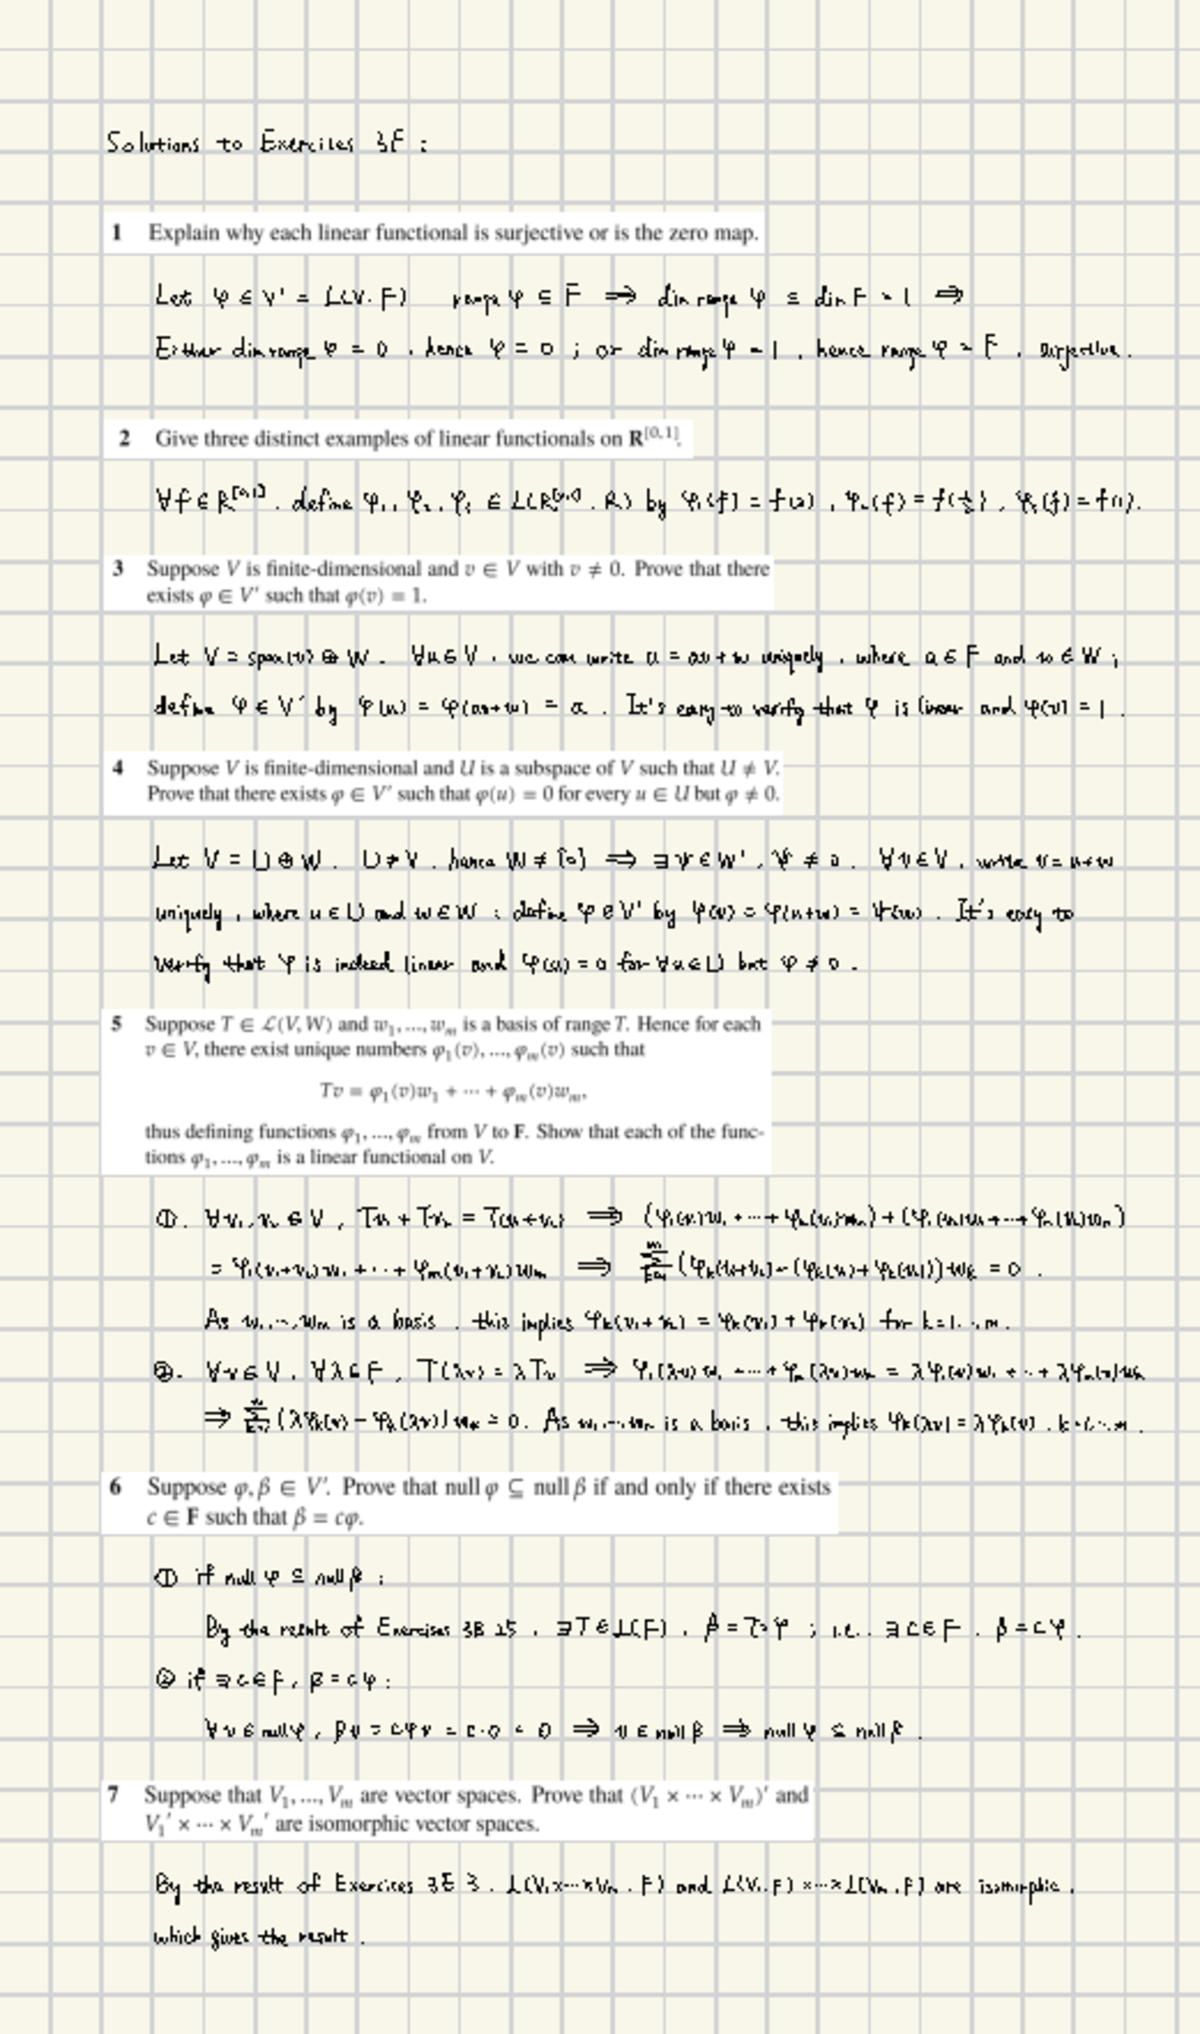 Solutions to Exercises 3F :
1 Explain why each linear functional is surjective or is the zero map.
Let φ ∈ V' = L(V, F) range φ ⊆ F ⇒ dim range φ ≤ dim F = 1 ⇒
Either dim range φ = 0 , hence φ = 0 ; or dim range φ = 1 , hence range φ = F , surjective .
2 Give three distinct examples of linear functionals on R^[0,1].
∀f ∈ R^[0,1] , define φ₁, φ₂, φ₃ ∈ L(R^[0,1], R) by φ₁(f) = f(0) , φ₂(f) = f(½) , φ₃(f) = f(1).
3 Suppose V is finite-dimensional and v ∈ V with v ≠ 0. Prove that there
exists φ ∈ V' such that φ(v) = 1.
Let V = span(v) ⊕ W . ∀u ∈ V , we can write u = av + w uniquely , where a ∈ F and w ∈ W ;
define φ ∈ V' by φ(u) = φ(av+w) = a . It's easy to verify that φ is linear and φ(v) = 1 .
4 Suppose V is finite-dimensional and U is a subspace of V such that U ≠ V.
Prove that there exists φ ∈ V' such that φ(u) = 0 for every u ∈ U but φ ≠ 0.
Let V = U ⊕ W . U ≠ V , hence W ≠ {0} ⇒ ∃ψ ∈ W' , ψ ≠ 0 . ∀v ∈ V , write v = u+w
uniquely , where u ∈ U and w ∈ W ; define φ ∈ V' by φ(v) = φ(u+w) = ψ(w) . It's easy to
verify that φ is indeed linear and φ(u) = 0 for ∀u ∈ U but φ ≠ 0 .
5 Suppose T ∈ L(V, W) and w₁, ..., wₘ is a basis of range T. Hence for each
v ∈ V, there exist unique numbers φ₁(v), ..., φₘ(v) such that
Tv = φ₁(v)w₁ + ··· + φₘ(v)wₘ,
thus defining functions φ₁, ..., φₘ from V to F. Show that each of the func-
tions φ₁, ..., φₘ is a linear functional on V.
①. ∀v₁, v₂ ∈ V , Tv₁ + Tv₂ = T(v₁+v₂) ⇒ (φ₁(v₁)w₁ + ··· + φₘ(v₁)wₘ) + (φ₁(v₂)w₁ + ··· + φₘ(v₂)wₘ)
= φ₁(v₁+v₂)w₁ + ··· + φₘ(v₁+v₂)wₘ ⇒ Σₖ₌₁ᵐ (φₖ(v₁+v₂) − (φₖ(v₁) + φₖ(v₂))) wₖ = 0 .
As w₁, ···, wₘ is a basis , this implies φₖ(v₁+v₂) = φₖ(v₁) + φₖ(v₂) for k=1, ··, m .
②. ∀v ∈ V , ∀λ ∈ F , T(λv) = λTv ⇒ φ₁(λv)w₁ + ··· + φₘ(λv)wₘ = λφ₁(v)w₁ + ·· + λφₘ(v)wₘ
⇒ Σₖ₌₁ᵐ (λφₖ(v) − φₖ(λv)) wₖ = 0 . As w₁, ··, wₘ is a basis , this implies φₖ(λv) = λφₖ(v) , k=1, ··, m .
6 Suppose φ, β ∈ V'. Prove that null φ ⊆ null β if and only if there exists
c ∈ F such that β = cφ.
① if null φ ⊆ null β :
By the result of Exercises 3B 25 , ∃T ∈ L(F) , β = T∘φ ; i.e. ∃c ∈ F , β = cφ .
② if ∃c ∈ F , β = cφ :
∀v ∈ null φ , βv = cφv = c·0 = 0 ⇒ v ∈ null β ⇒ null φ ⊆ null β .
7 Suppose that V₁, ..., Vₘ are vector spaces. Prove that (V₁ × ··· × Vₘ)' and
V₁' × ··· × Vₘ' are isomorphic vector spaces.
By the result of Exercises 3E 3 , L(V₁×···×Vₘ , F) and L(V₁, F) ×···× L(Vₘ, F) are isomorphic ,
which gives the result .